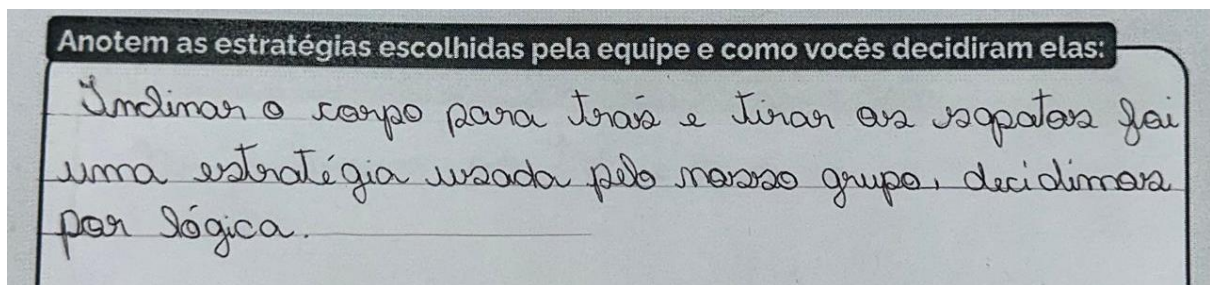 Anotem as estratégias escolhidas pela equipe e como vocês decidiram elas:
Inclinar o corpo para trás e tirar os sapatos foi
uma estratégia usada pelo nosso grupo, decidimos
por lógica.